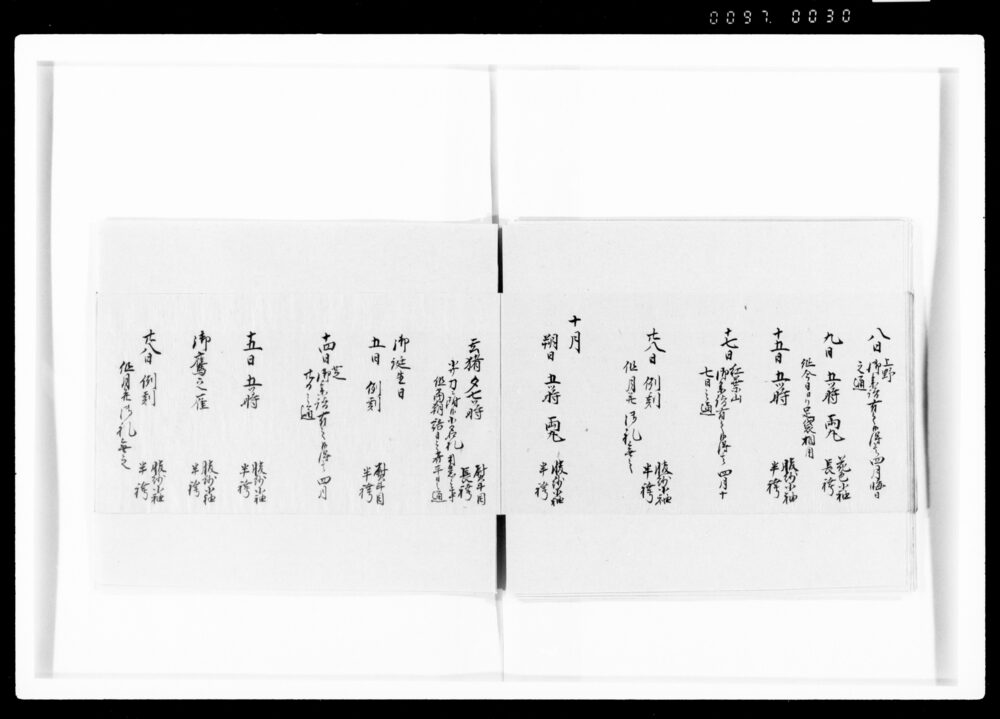 0097. 0030
八日 上野
御参詣有之候得者四月晦日
之通
九日 五半時 両丸 花色小袖
長袴
但今日より足袋相用
十五日 五半時 服紗小袖
半袴
十七日 紅葉山
御参詣有之候得者四月十
七日之通
廿八日 例刻 服紗小袖
半袴
但月次御礼無之
十月
朔日 五半時 両丸 服紗小袖
半袴
玄猪 夕七半時 熨斗目
長袴
御誕生日
五日 例刻 熨斗目
半袴
十四日 芝
御参詣有之候得者四月
之通
十五日 五半時 服紗小袖
半袴
御鷹之雁 服紗小袖
半袴
廿八日 例刻 服紗小袖
半袴
但月次御礼無之